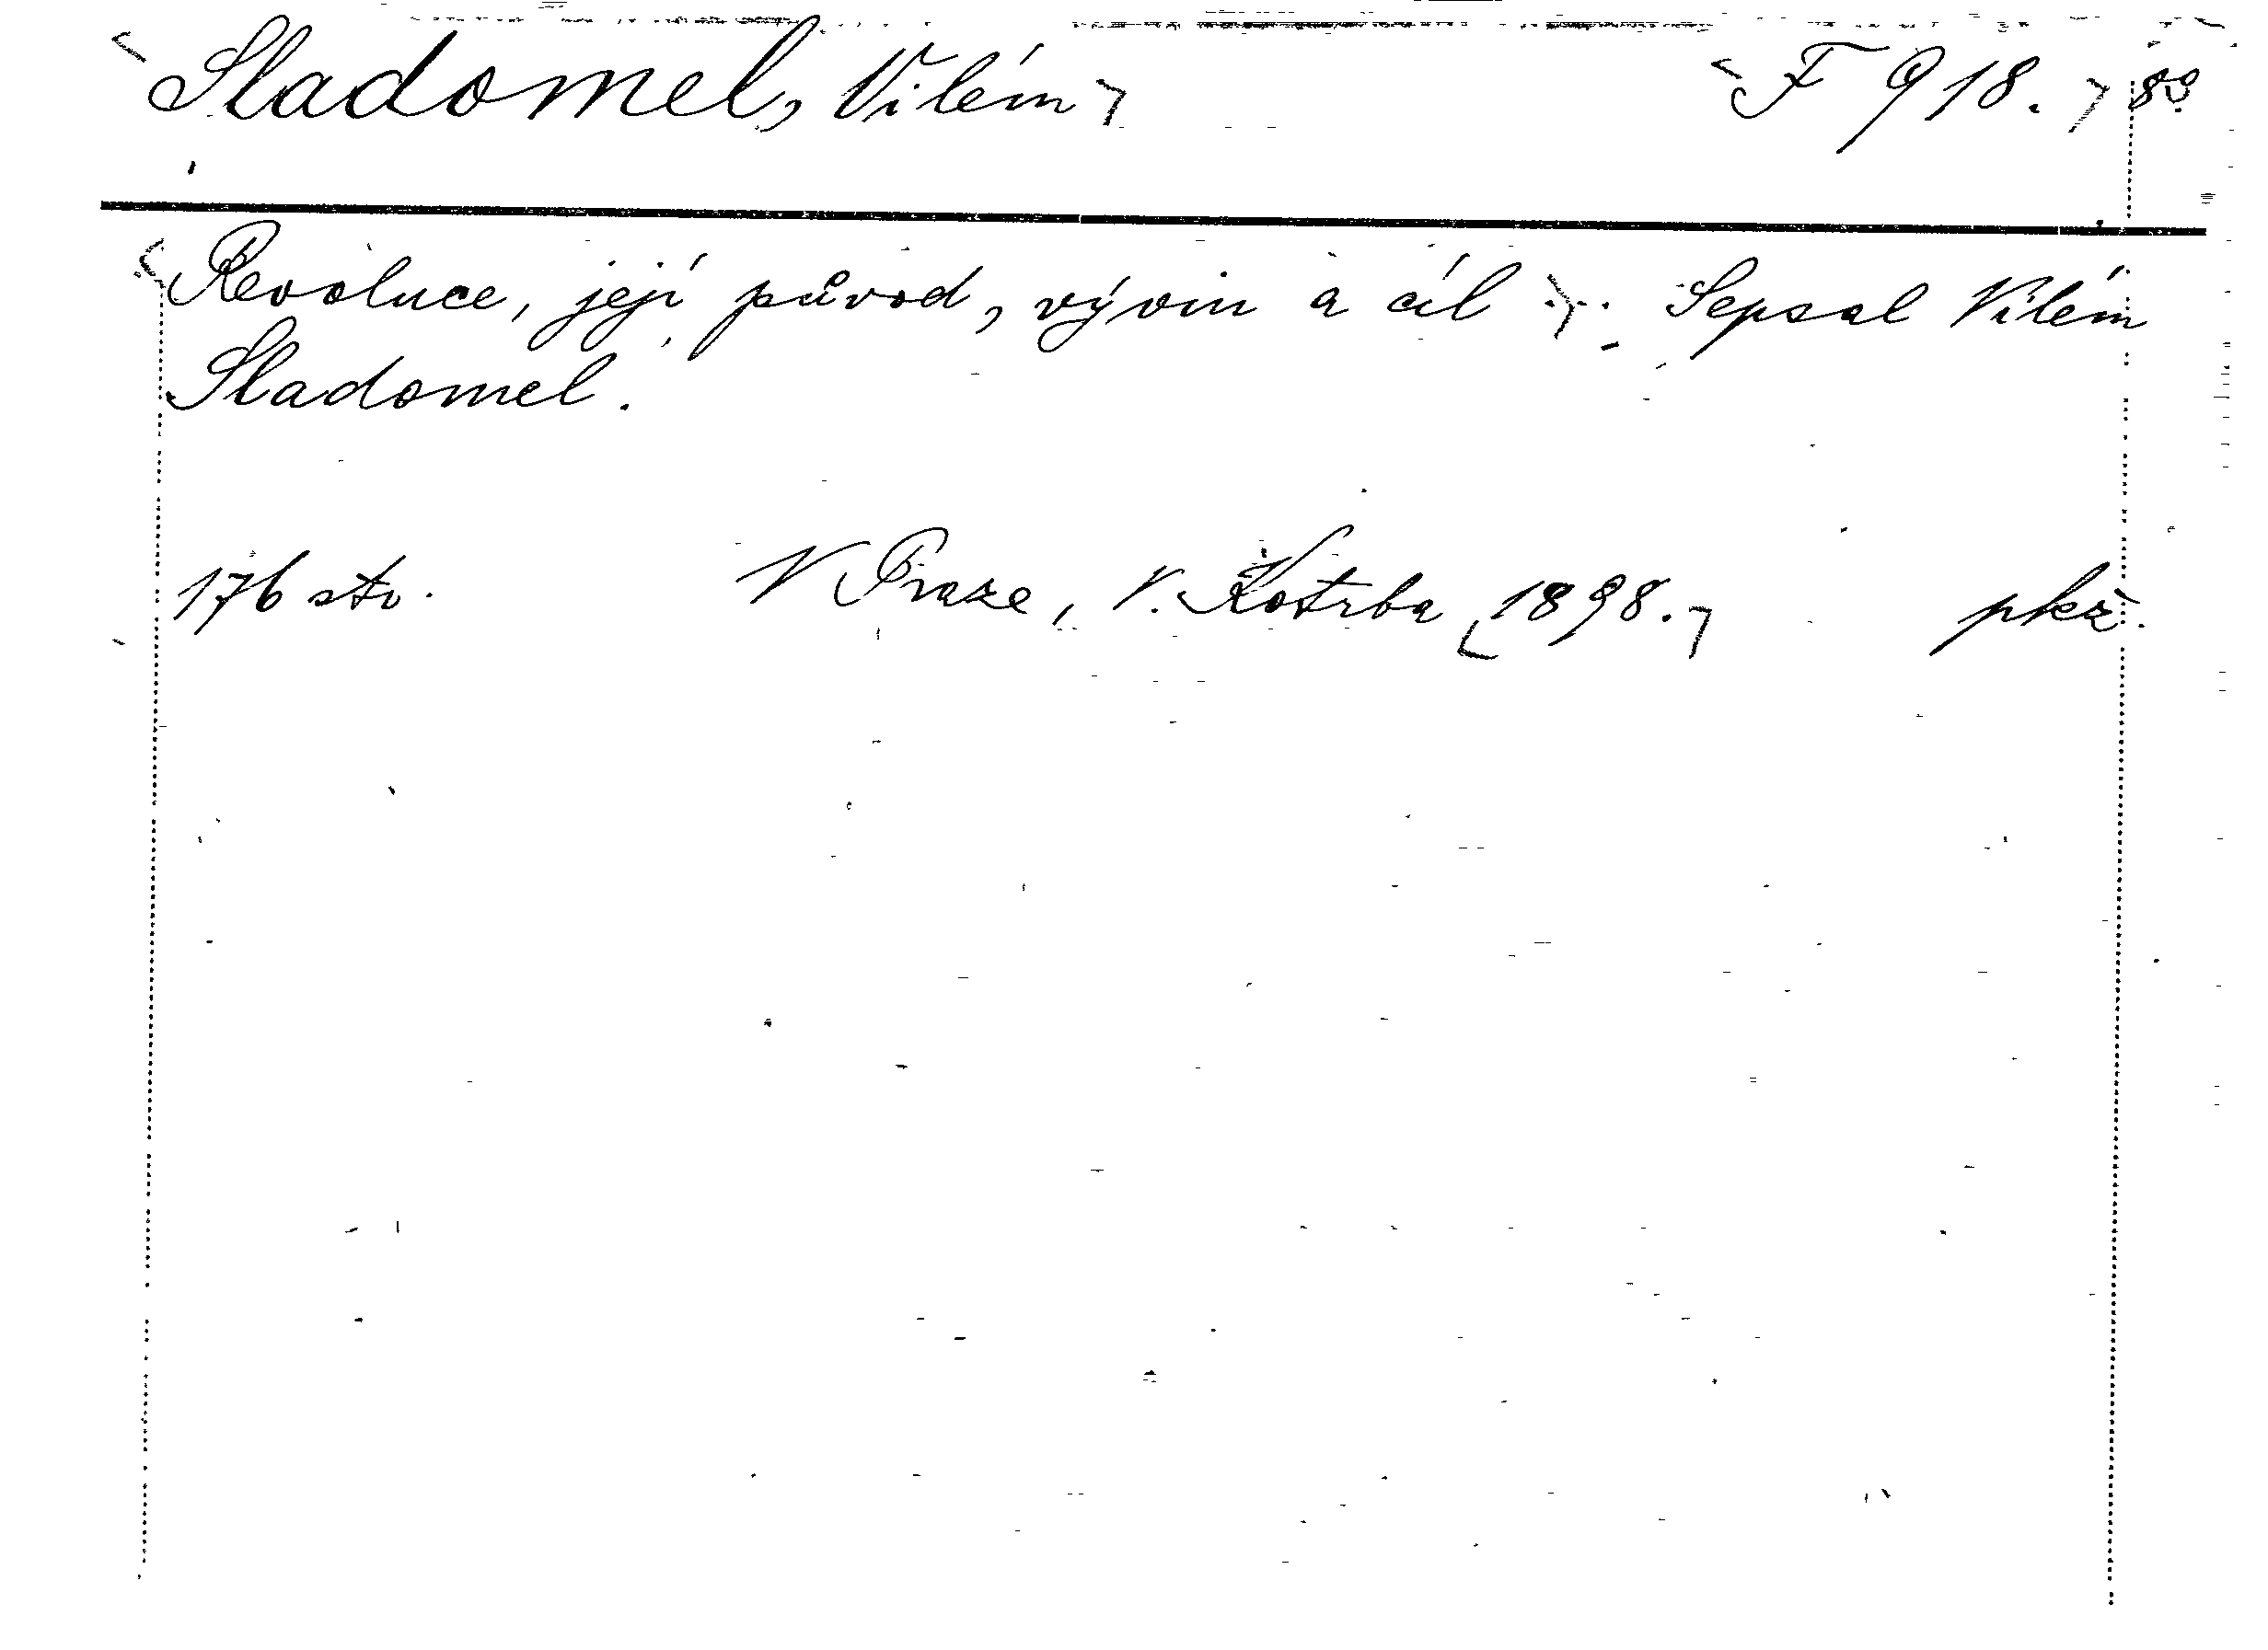 Sladomel, Vilém F 918. 8º
Revoluce, její původ, vývin a cíl. Sepsal Vilém
Sladomel.
176 str. V Praze, V. Kotrba 1898. pkž.